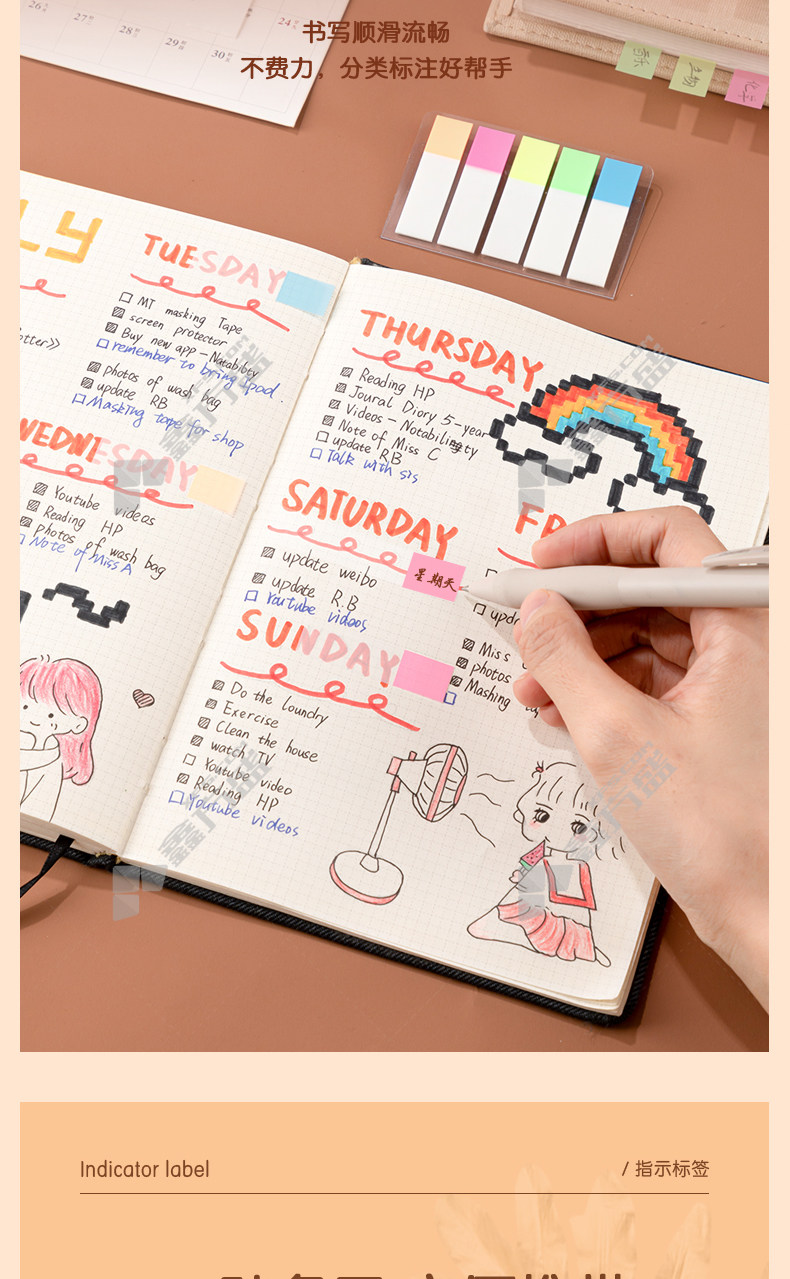 书写顺滑流畅
不费力，分类标注好帮手
26
27
28
29
30
24
LY
TUESDAY
MT masking Tape
screen protector
Buy new app - Notability
remember to bring ipad.
photos of wash bag
update RB
Masking tape for shop
WEDNESDAY
Youtube videos
Reading HP
photos of wash bag
Note of Miss A
THURSDAY
Reading HP
Joural Diory 5-year
Videos - Notability
Note of Miss C
update RB
Talk with sis
SATURDAY
update weibo
update R.B
Youtube videos
星期天
SUNDAY
Do the loundry
Exercise
Clean the house
watch TV
Youtube video
Reading HP
Youtube videos
FR
Miss
photos
Mashing
Indicator label
/ 指示标签